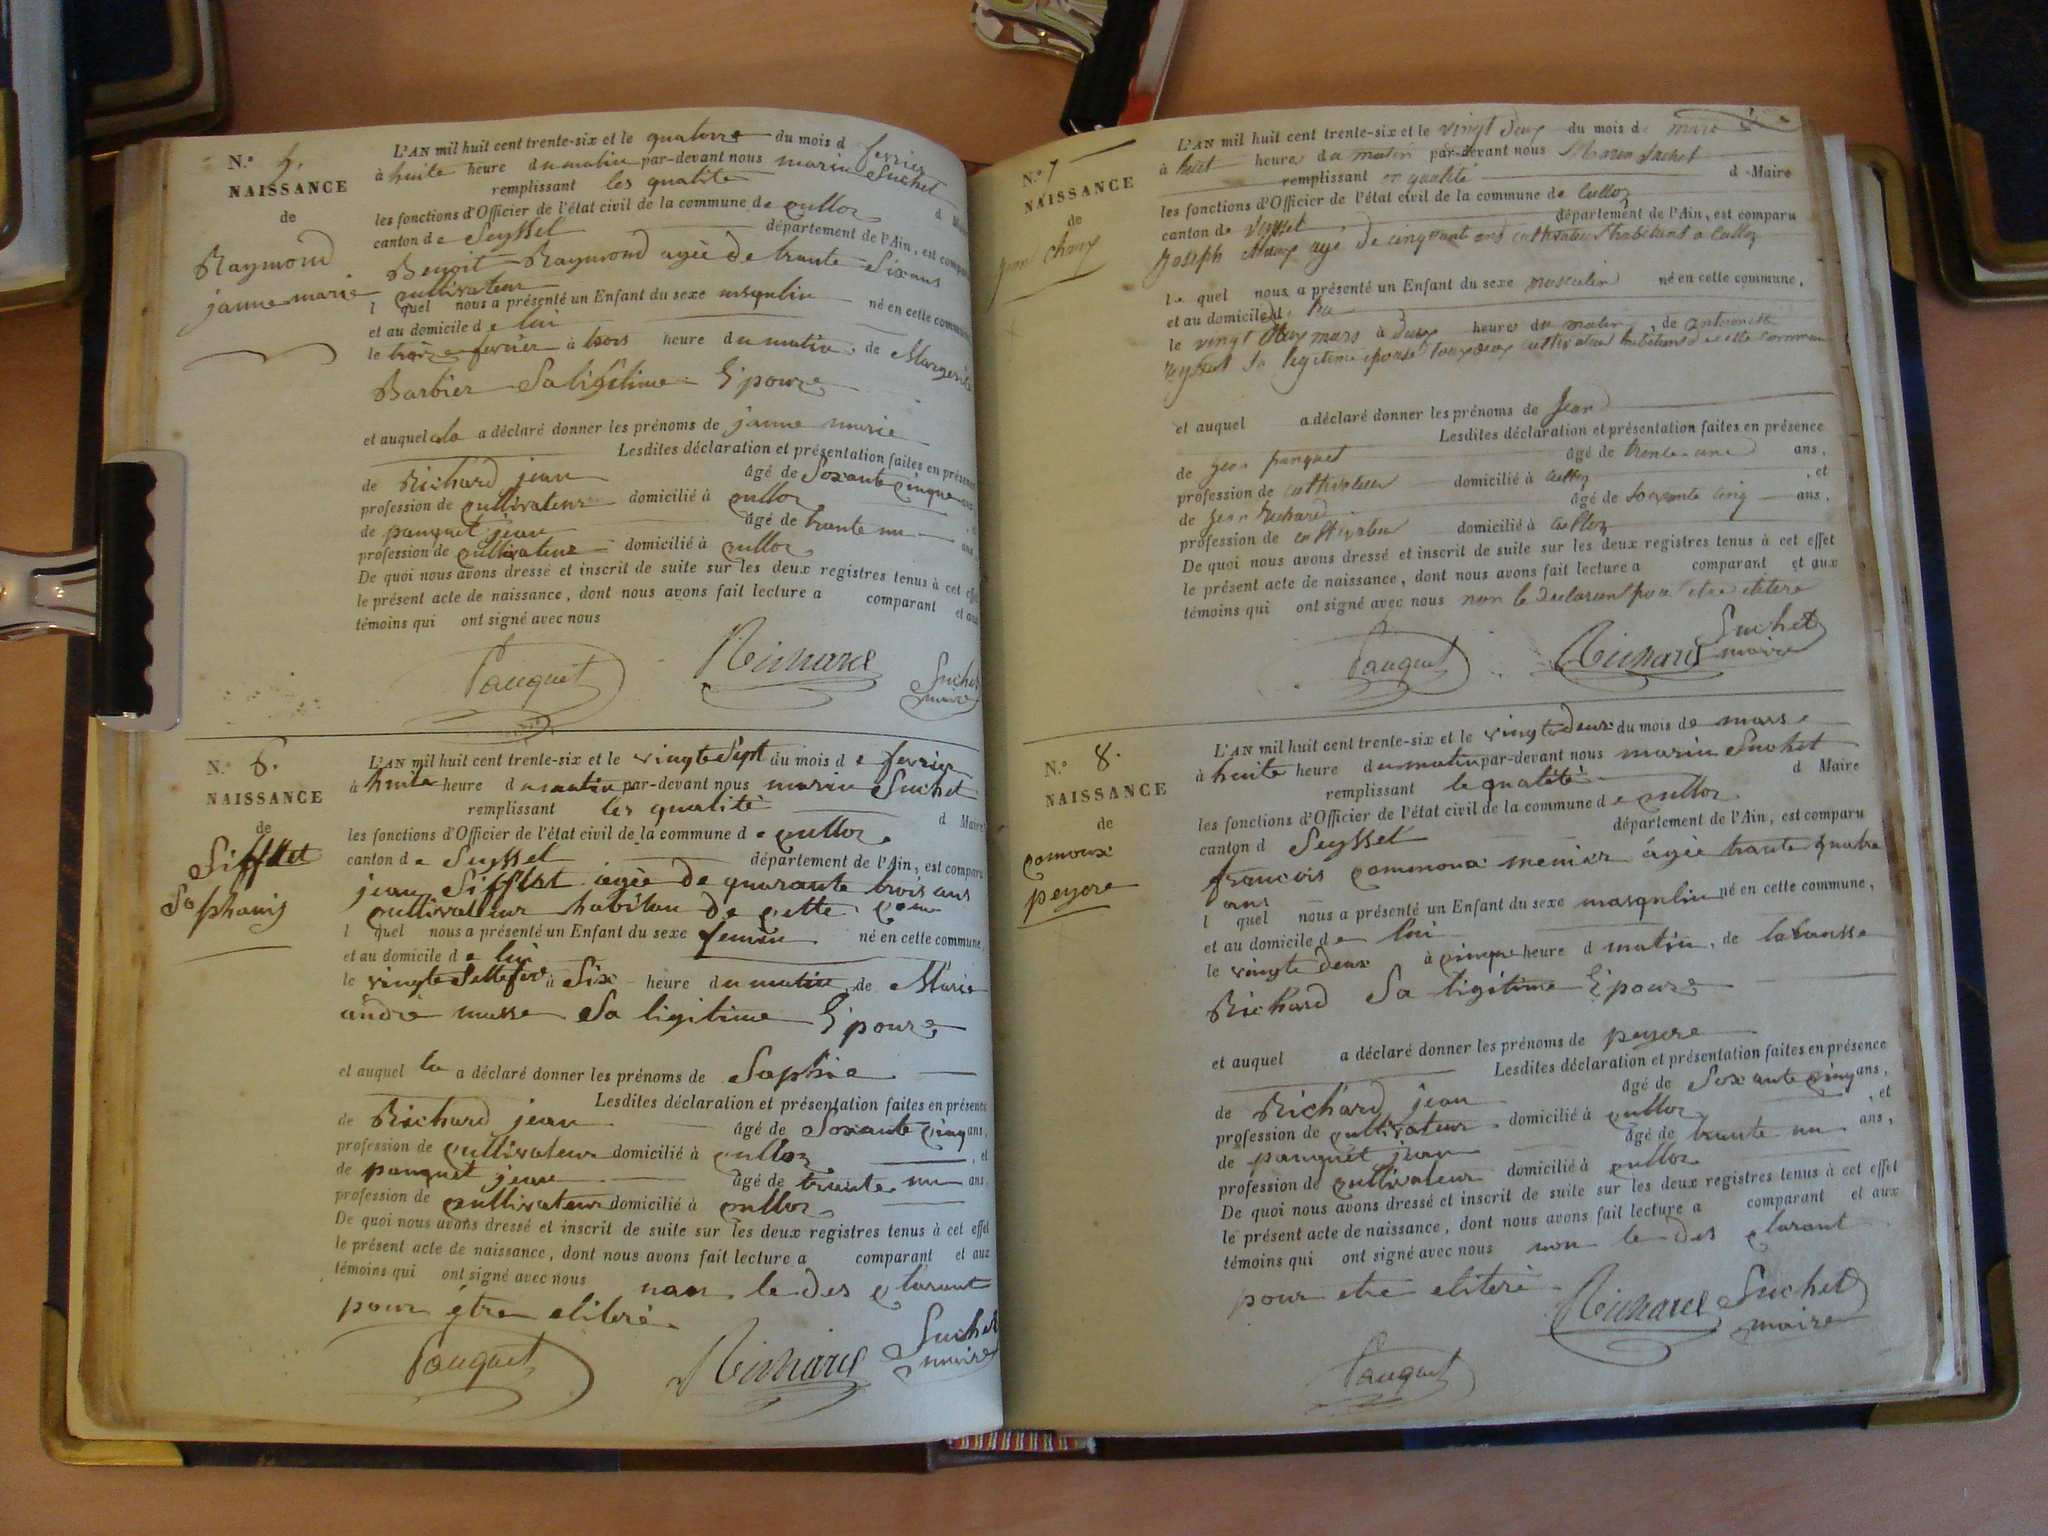 N.° 5.
NAISSANCE
de
Raymond
janne marie
L'AN mil huit cent trente-six et le quatorze du mois d fevrier
à huite heure du matin par-devant nous marin Suchet
remplissant les qualité d Maire
les fonctions d'Officier de l'état civil de la commune de culloz
canton de Seyssel département de l'Ain, est comparu
Benoit Raymond agèe de trante Six ans
cultivateur
l quel nous a présenté un Enfant du sexe masqulin né en cette commune
et au domicile de lui
le fevrier à trois heure du matin, de
Barbier Sa Epouze
et auquel la a déclaré donner les prénoms de janne marie
Lesdites déclaration et présentation faites en présence
de Richard jean âgé de Soxante cinque ans
profession de cultivateur domicilié à culloz
de pauquet jean âgé de trante un ans
profession de cultivateur domicilié à culloz
De quoi nous avons dressé et inscrit de suite sur les deux registres tenus à cet effet
le présent acte de naissance, dont nous avons fait lecture a comparant et aux
témoins qui ont signé avec nous
Pauquet Richard Suchet
maire
N.° 6.
NAISSANCE
de
Sifflet
Sophanij
L'AN mil huit cent trente-six et le vingte Sept du mois de fevrier
à huite heure du matin par-devant nous marin Suchet
remplissant les qualité d Maire
les fonctions d'Officier de l'état civil de la commune de culloz
canton de Seyssel département de l'Ain, est comparu
jean Sifflet agèe de quarante trois ans
cultivateur habitan de cette com
l quel nous a présenté un Enfant du sexe femin né en cette commune,
et au domicile de lui
le vingte Sette fevr à Six heure du matin, de Marie
andrè musse Sa ligitime Epouze
et auquel la a déclaré donner les prénoms de Sophie
Lesdites déclaration et présentation faites en présence
de Richard jean âgé de Soxante cinq ans,
profession de cultivateur domicilié à culloz , et
de pauquet jean âgé de trante un ans,
profession de cultivateur domicilié à culloz
De quoi nous avons dressé et inscrit de suite sur les deux registres tenus à cet effet
le présent acte de naissance, dont nous avons fait lecture a comparant et aux
témoins qui ont signé avec nous non le des clarant
pour étre eliterè
Pauquet Richard Suchet
maire
N.° 7
NAISSANCE
de
jean
L'AN mil huit cent trente-six et le vingt deux du mois de mars
à huit heures du matin par-devant nous Marin Suchet
remplissant en qualité d Maire
les fonctions d'Officier de l'état civil de la commune de Culloz
canton de Seyssel département de l'Ain, est comparu
Joseph agé de cinquant ans cultivateur habitant a Culloz
le quel nous a présenté un Enfant du sexe masculin né en cette commune,
et au domicile de lui
le vingt deux mars à deux heures du matin, de antoinette
sa legitime épouse tous deux cultivateur habitans de cette commune
et auquel a déclaré donner les prénoms de Jean
Lesdites déclaration et présentation faites en présence
de jean pauquet âgé de trente-un ans,
profession de cultivateur domicilié à Culloz , et
de Jean Richard âgé de soixante cinq ans,
profession de cultivateur domicilié à Culloz
De quoi nous avons dressé et inscrit de suite sur les deux registres tenus à cet effet
le présent acte de naissance, dont nous avons fait lecture a comparant et aux
témoins qui ont signé avec nous non le declarant pour etre elitere
Pauquet Richard Suchet
maire
N.° 8.
NAISSANCE
de
comoux
peyere
L'AN mil huit cent trente-six et le vingte deux du mois de mars
à huite heure du matin par-devant nous marin Suchet
remplissant le qualité d Maire
les fonctions d'Officier de l'état civil de la commune de culloz
canton d Seyssel département de l'Ain, est comparu
francois commoux menier agèe trante quatre
ans
l quel nous a présenté un Enfant du sexe masqulin né en cette commune,
et au domicile de lui
le vingte deux à cinque heure d matin, de
Richard Sa ligitime Epouze
et auquel a déclaré donner les prénoms de peyere
Lesdites déclaration et présentation faites en présence
de Richard jean âgé de Soxante cinq ans,
profession de cultivateur domicilié à culloz , et
de pauquet jean âgé de trante un ans,
profession de cultivateur domicilié à culloz
De quoi nous avons dressé et inscrit de suite sur les deux registres tenus à cet effet
le présent acte de naissance, dont nous avons fait lecture a comparant et aux
témoins qui ont signé avec nous non le des clarant
pour etre eliterè
Richard Suchet
maire
Pauquet